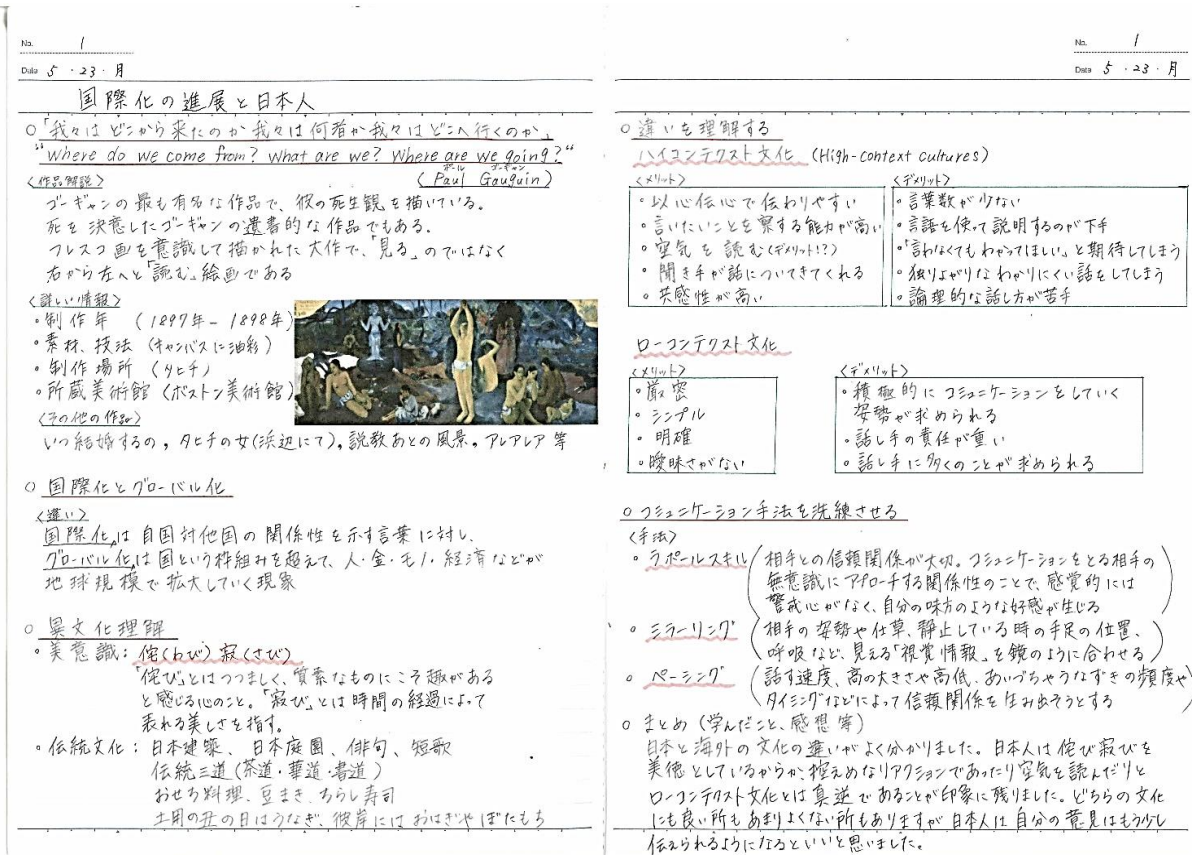 No. 1
Date 5・23・月
国際化の進展と日本人
○「我々はどこから来たのか我々は何者か我々はどこへ行くのか」
"Where do we come from? What are we? Where are we going?"
(Paul Gauguin)
ポール ゴーギャン
〈作品解説〉
ゴーギャンの最も有名な作品で、彼の死生観を描いている。
死を決意したゴーギャンの遺書的な作品でもある。
フレスコ画を意識して描かれた大作で、「見る」のではなく
右から左へと「読む」絵画である
〈詳しい情報〉
・制作年 (1897年-1898年)
・素材、技法 (キャンバスに油彩)
・制作場所 (タヒチ)
・所蔵美術館 (ボストン美術館)
〈その他の作品〉
いつ結婚するの。タヒチの女(浜辺にて)。説教あとの風景。アレアレア 等
○ 国際化とグローバル化
〈違い〉
国際化は自国対他国の関係性を示す言葉に対し、
グローバル化は国という枠組みを超えて、人・金・モノ・経済などが
地球規模で拡大していく現象
○ 異文化理解
・美意識:侘(わび)寂(さび)
「侘び」とはつつましく、質素なものにこそ趣がある
と感じる心のこと。「寂び」とは時間の経過によって
表れる美しさを指す。
・伝統文化:日本建築、日本庭園、俳句、短歌
伝統三道(茶道・華道・書道)
おせち料理、豆まき、ちらし寿司
土用の丑の日はうなぎ、彼岸にはおはぎやぼたもち
No. 1
Date 5・23・月
○ 違いを理解する
ハイコンテクスト文化 (High-context cultures)
〈メリット〉
・以心伝心で伝わりやすい
・言いたいことを察する能力が高い
・空気を読む(デメリット!?)
・聞き手が話についてきてくれる
・共感性が高い
〈デメリット〉
・言葉数が少ない
・言語を使って説明するのが下手
・「言わなくてもわかってほしい」と期待してしまう
・独りよがりなわかりにくい話をしてしまう
・論理的な話し方が苦手
ローコンテクスト文化
〈メリット〉
・厳密
・シンプル
・明確
・曖昧さがない
〈デメリット〉
・積極的にコミュニケーションをしていく
姿勢が求められる
・話し手の責任が重い
・話し手に多くのことが求められる
○ コミュニケーション手法を洗練させる
〈手法〉
・ラポールスキル(相手との信頼関係が大切。コミュニケーションをとる相手の
無意識にアプローチする関係性のことで、感覚的には
警戒心がなく、自分の味方のような好感が生じる)
・ミラーリング(相手の姿勢や仕草、静止している時の手足の位置、
呼吸など、見える「視覚情報」を鏡のように合わせる)
・ペーシング(話す速度、高の大きさや高低、あいづちやうなずきの頻度や
タイミングなどによって信頼関係を生み出そうとする
○ まとめ (学んだこと、感想等)
日本と海外の文化の違いがよく分かりました。日本人は侘び寂びを
美徳としているからか、控えめなリアクションであったり空気を読んだりと
ローコンテクスト文化とは真逆であることが印象に残りました。どちらの文化
にも良い所もあまりよくない所もありますが日本人は自分の意見はもう少し
伝えられるようになるといいと思いました。